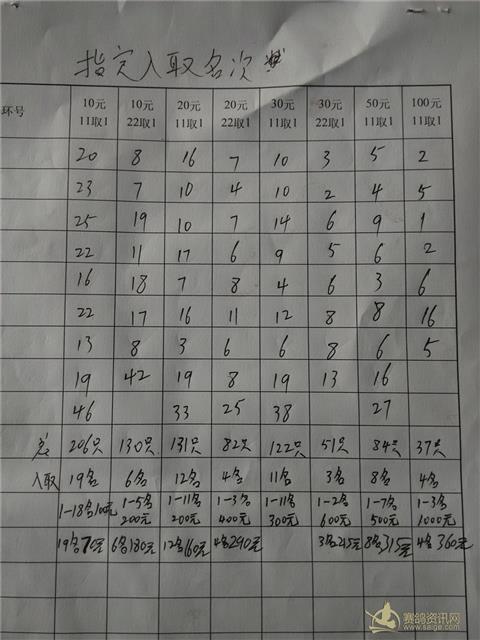 指定入取名次
环号 10元 10元 20元 20元 30元 30元 50元 100元
11取1 22取1 11取1 22取1 11取1 22取1 11取1 11取1
20 8 16 7 10 3 5 2
23 7 10 4 10 2 4 5
25 19 10 7 14 6 9 1
22 11 17 6 9 5 6 2
16 18 7 8 4 6 3 6
22 17 16 11 12 8 8 16
13 8 3 6 6 8 6 5
19 42 19 8 19 13 16
46 33 25 38 27
206只 130只 131只 82只 122只 51只 84只 37只
入取 19名 6名 12名 4名 11名 3名 8名 4名
1-18名100元 1-5名 1-11名 1-3名 1-11名 1-2名 1-7名 1-3名
200元 200元 400元 300元 600元 500元 1000元
19名70元 6名180元 12名160元 4名290元 3名245元 8名315元 4名360元
赛鸽资讯网
www.saige.com